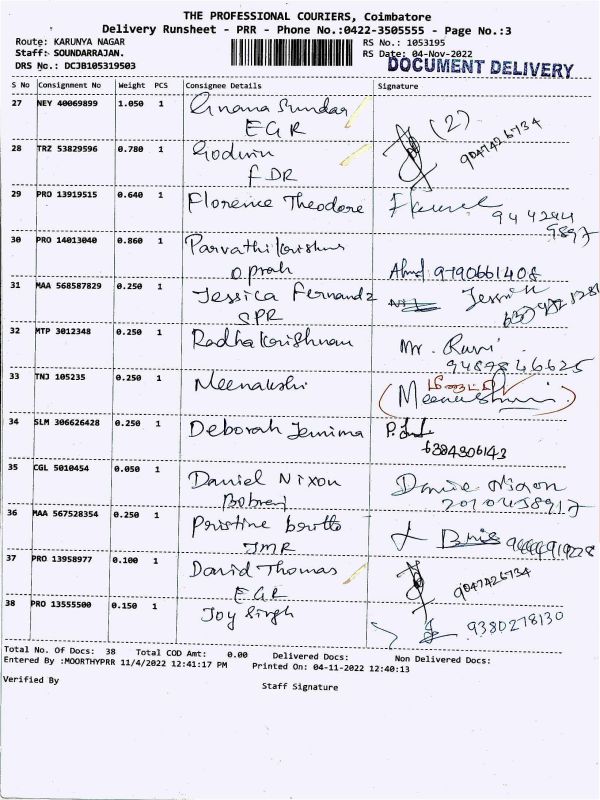 THE PROFESSIONAL COURIERS, Coimbatore
Delivery Runsheet - PRR - Phone No.:0422-3505555 - Page No.:3
Route: KARUNYA NAGAR RS No.: 1053195
Staff: SOUNDARRAJAN. RS Date: 04-Nov-2022
DRS No.: DCJB105319503 DOCUMENT DELIVERY
S No Consignment No Weight PCS Consignee Details Signature
27 NEY 40069899 1.050 1 Gnana Sundar
EGR (2)
28 TRZ 53829596 0.780 1 Godwin 9047426734
FDR
29 PRO 13919515 0.640 1 Florence Theodore
30 PRO 14013040 0.860 1 Parvathi Krishna
9790661408
31 MAA 568587829 0.250 1 Jessica Fernandz
SPR
32 MTP 3012348 0.250 1 Radha Krishnan Mr. Ravi
9489846625
33 TNJ 105235 0.250 1 Meenakshi
34 SLM 306626428 0.250 1 Deborah Jemima
6384306143
35 CGL 5010454 0.050 1 Daniel Nixon
36 MAA 567528354 0.250 1 Pristine
JMR
37 PRO 13958977 0.100 1 David Thomas
EGR 9047426734
38 PRO 13555500 0.150 1 Joy Singh 9380278130
Total No. Of Docs: 38 Total COD Amt: 0.00 Delivered Docs: Non Delivered Docs:
Entered By :MOORTHYPRR 11/4/2022 12:41:17 PM Printed On: 04-11-2022 12:40:13
Verified By
Staff Signature